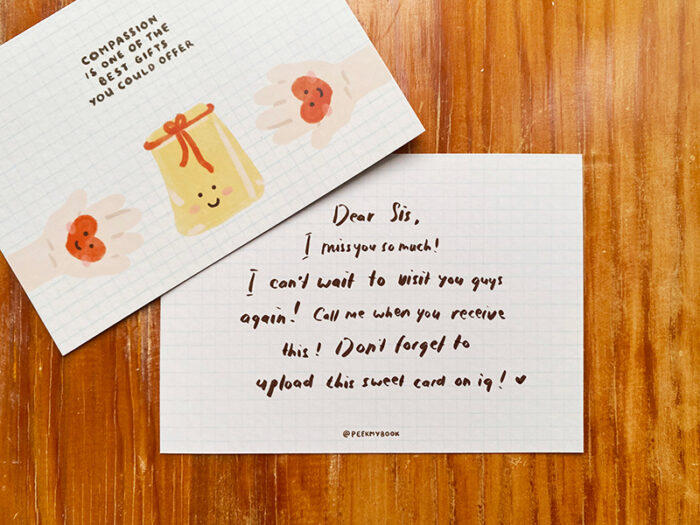 COMPASSION
IS ONE OF THE
BEST GIFTS
YOU COULD OFFER
Dear Sis,
I miss you so much!
I can't wait to visit you guys
again! Call me when you receive
this! Don't forget to
upload this sweet card on ig! ♥
@PEEKMYBOOK